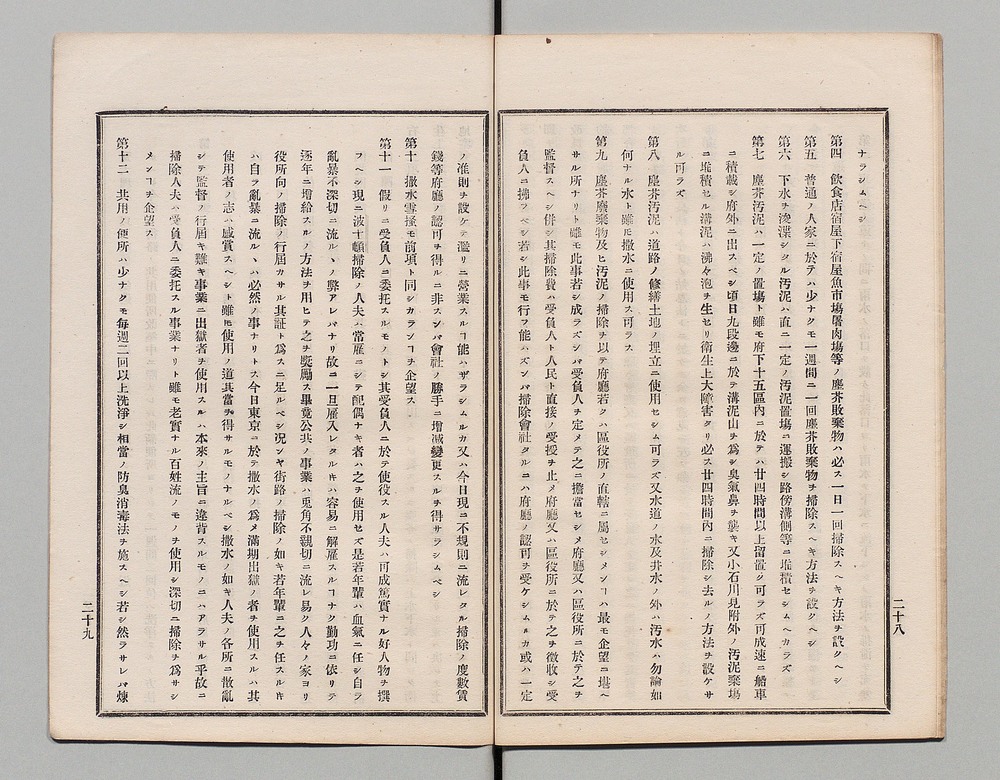 ナラシムヘシ
第四　飲食店宿屋下宿屋魚市場屠肉場等ノ塵芥敗棄物ハ必ス一日一回掃除スヘキ方法ヲ設クヘシ
第五　普通ノ人家ニ於テハ少ナクモ一週間ニ一回塵芥敗棄物ヲ掃除スヘキ方法ヲ設クヘシ
第六　下水ヲ浚渫シタル汚泥ハ直ニ一定ノ汚泥置場ニ運搬シ路傍溝側等ニ堆積セシムヘカラズ
第七　塵芥汚泥ハ一定ノ置場ト雖モ府下十五區內ニ於テハ廿四時間以上留置ク可ラズ可成速ニ船車
ニ積載シ府外ニ出スベシ頃日九段邊ニ於テ溝泥山ヲ爲シ臭氣鼻ヲ襲キ又小石川見附外ノ汚泥棄場
ニ堆積セル溝泥ハ沸々泡ヲ生セリ衛生上大障害タリ必ス廿四時間內ニ掃除シ去ルノ方法ヲ設ケサ
ル可ラズ
第八　塵芥汚泥ハ道路ノ修繕土地ノ埋立ニ使用セシム可ラズ又水道ノ水及井水ノ外ハ汚水ハ勿論如
何ナル水ト雖モ撒水ニ使用ス可ラス
第九　塵芥廢棄物及ヒ汚泥ノ掃除ヲ以テ府廳若クハ區役所ノ直轄ニ屬セシメンヿハ最モ企望ニ堪ヘ
サル所ナリト雖モ此事若シ成ラズンバ受負人ヲ定メテ之ニ擔當セシメ府廳又ハ區役所ニ於テ之ヲ
監督スヘシ併シ其掃除費ハ受負人ト人民ト直接ノ受授ヲ止メ府廳又ハ區役所ニ於テ之ヲ徵收シ受
負人ニ拂フベシ若シ此事モ行フ能ハズンバ掃除會社タルニハ府廳ノ認可ヲ受ケシムルカ或ハ一定
二十八
ノ准則ヲ設ケテ濫リニ營業スルヿ能ハザラシムルカ又ハ今日現ニ不規則ニ流レタル掃除ノ度數賃
錢等府廳ノ認可ヲ得ルニ非スンバ會社ノ勝手ニ增減變更スルヲ得サラシムベシ
第十　撒水雪掻モ前項ト同シカランヿヲ企望ス
第十一　假リニ受負人ニ委托スルモノトシ其受負人ニ於テ使役スル人夫ハ可成篤實ナル好人物ヲ撰
フヘシ現ニ波士頓掃除ノ人夫ハ常雇ニシテ配偶ナキ者ハ之ヲ使用セズ是若年輩ハ血氣ニ任シ自ラ
亂暴不深切ニ流ルヽノ弊アレバナリ故ニ一旦雇入レタルキハ容易ニ解雇スルヿナク勤功ニ依リテ
逐年ニ增給スルノ方法ヲ用ヒテ之ヲ獎勵ス畢竟公共ノ事業ハ兎角不親切ニ流レ易ク人々ノ家ヨリ
役所向ノ掃除ノ行屆カサル其証ト爲スニ足ルベシ況ンヤ街路ノ掃除ノ如キ若年輩ニ之ヲ任スルキ
ハ自ラ亂暴ニ流ルヽハ必然ノ事ナリトス今日東京ニ於テ撒水ノ爲メ滿期出獄ノ者ヲ使用スルハ其
使用者ノ志ハ感賞スヘシト雖モ使用ノ道其當ヲ得サルモノナルベシ撒水ノ如キ人夫ノ各所ニ散亂
シテ監督ノ行屆キ難キ事業ニ出獄者ヲ使用スルハ本來ノ主旨ニ違背スルモノニハアラサル乎故ニ
掃除人夫ハ受負人ニ委托スル事業ナリト雖モ老實ナル百姓流ノモノヲ使用シ深切ニ掃除ヲ爲サシ
メンヿヲ企望ス
第十二　共用ノ便所ハ少ナクモ每週二回以上洗淨シ相當ノ防臭消毒法ヲ施スヘシ若シ然ラサレバ煉
二十九